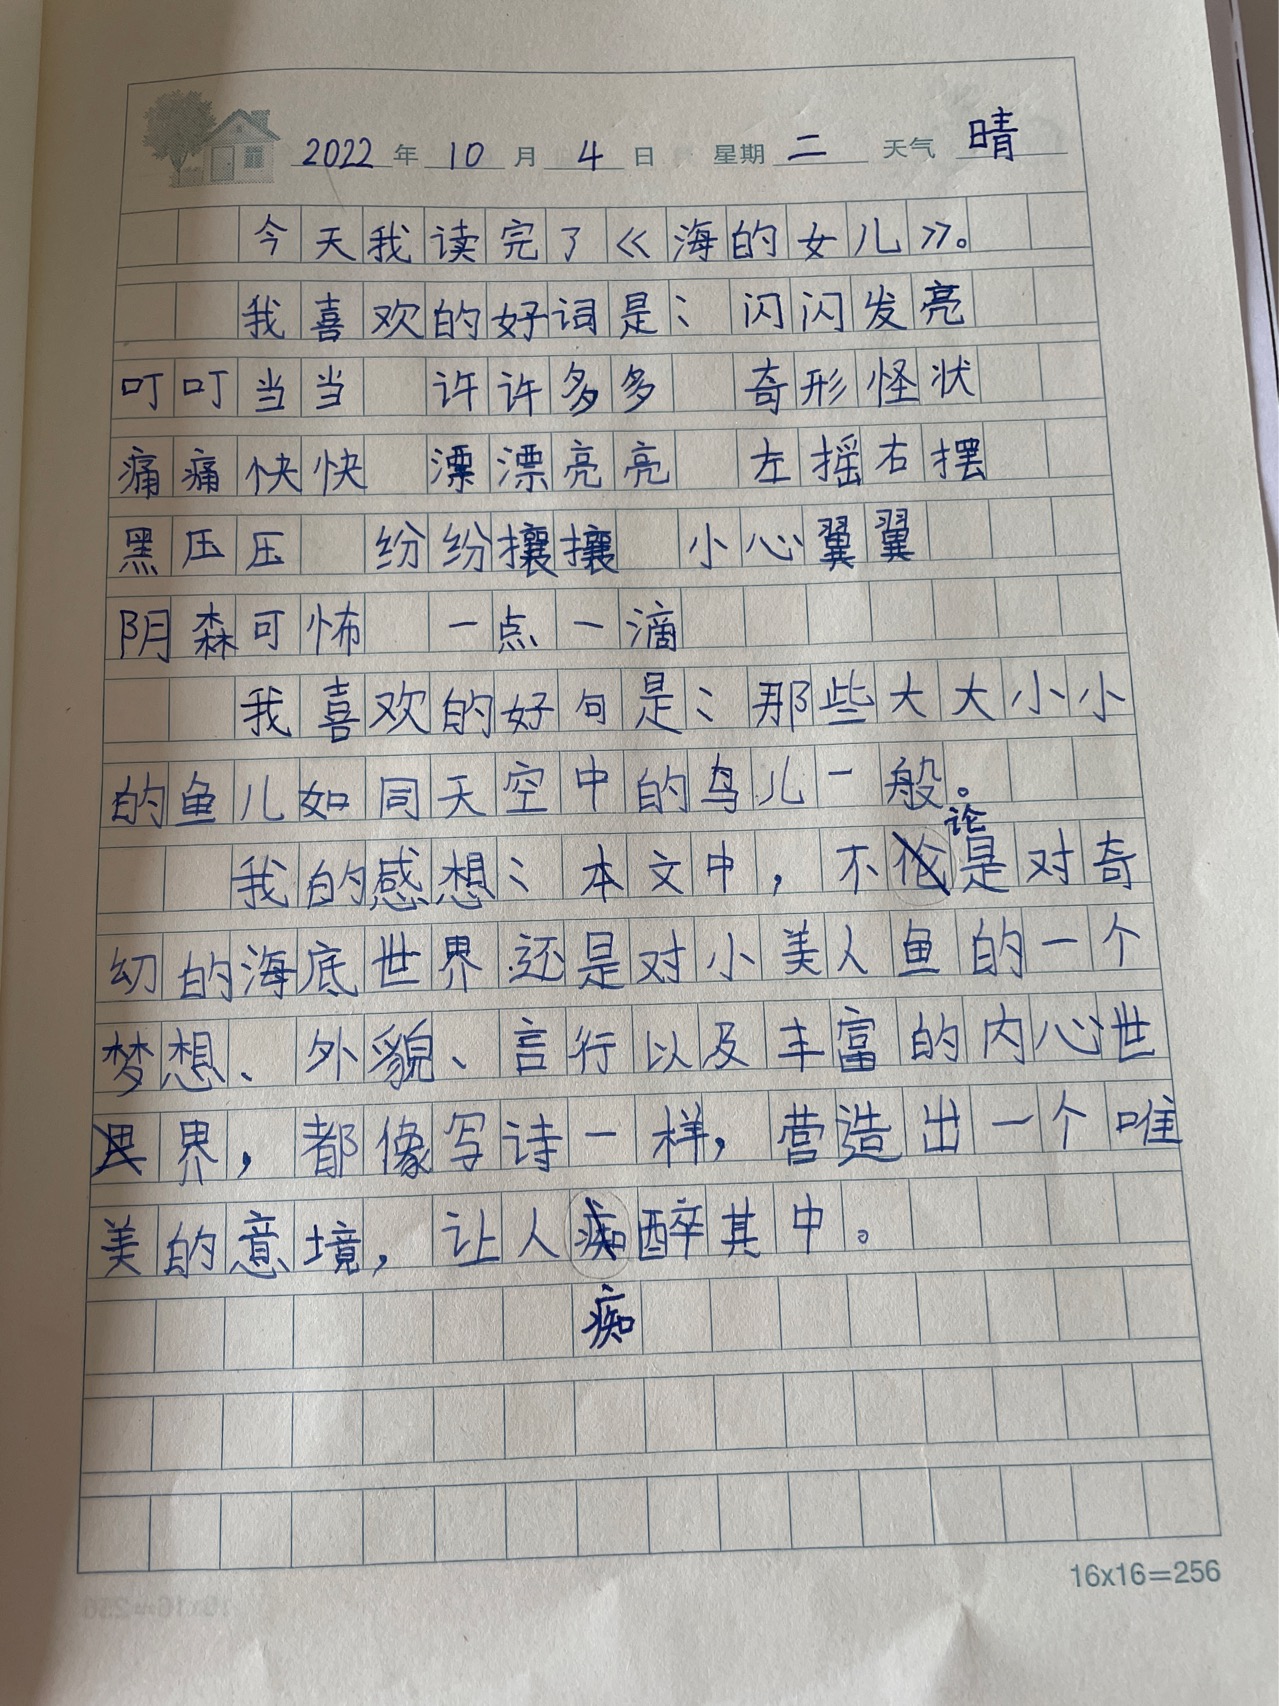 2022年10月4日 星期二 天气晴
今天我读完了《海的女儿》。
我喜欢的好词是：闪闪发亮
叮叮当当 许许多多 奇形怪状
痛痛快快 漂漂亮亮 左摇右摆
黑压压 纷纷攘攘 小心翼翼
阴森可怖 一点一滴
我喜欢的好句是：那些大大小小
的鱼儿如同天空中的鸟儿一般。
我的感想：本文中，不论是对奇
幻的海底世界还是对小美人鱼的一个
梦想、外貌、言行以及丰富的内心世
界，都像写诗一样，营造出一个唯
美的意境，让人痴醉其中。
16x16=256